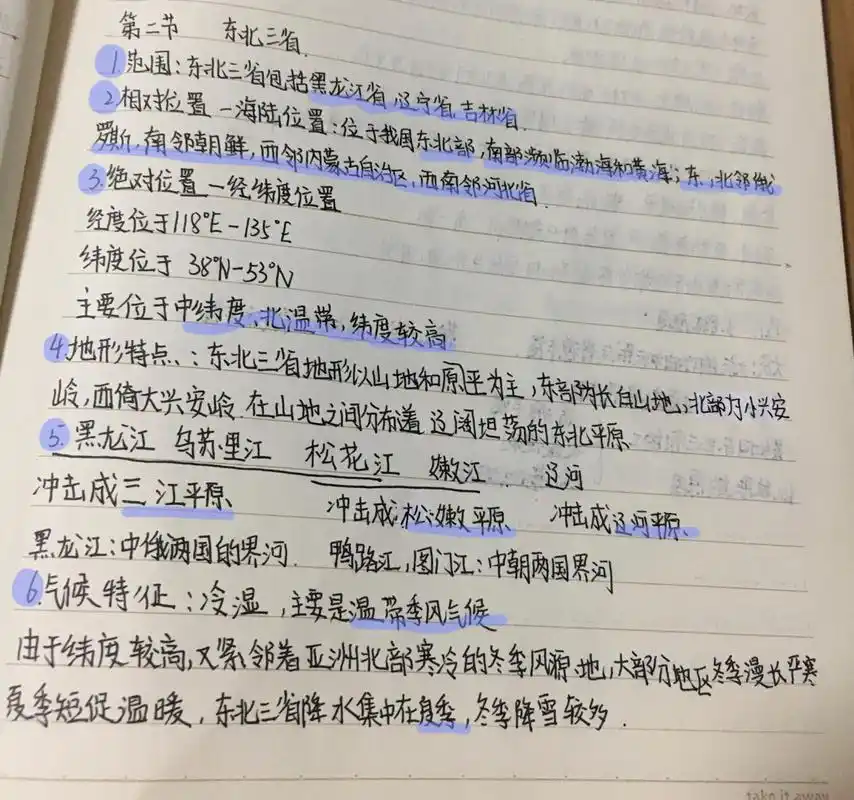 第二节 东北三省.
1.范围：东北三省包括黑龙江省,辽宁省,吉林省.
2.相对位置—海陆位置：位于我国东北部,南部濒临渤海和黄海；东,北邻俄
罗斯,南邻朝鲜,西邻内蒙古自治区,西南邻河北省.
3.绝对位置—经纬度位置
经度位于118°E-135°E
纬度位于 38°N-53°N
主要位于中纬度、北温带,纬度较高
4.地形特点：东北三省地形以山地和原平为主,东部为长白山地,北部为小兴安
岭,西倚大兴安岭.在山地之间分布着辽阔坦荡的东北平原.
5.黑龙江 乌苏里江 松花江 嫩江 辽河
冲击成三江平原、 冲击成松嫩平原 冲击成辽河平原、
黑龙江：中俄两国的界河. 鸭路江,图门江：中朝两国界河
6.气候特征：冷湿,主要是温带季风气候
由于纬度较高,又紧邻着亚洲北部寒冷的冬季风源地,大部分地区冬季漫长严寒
夏季短促温暖,东北三省降水集中在夏季,冬季降雪较多.
take it away